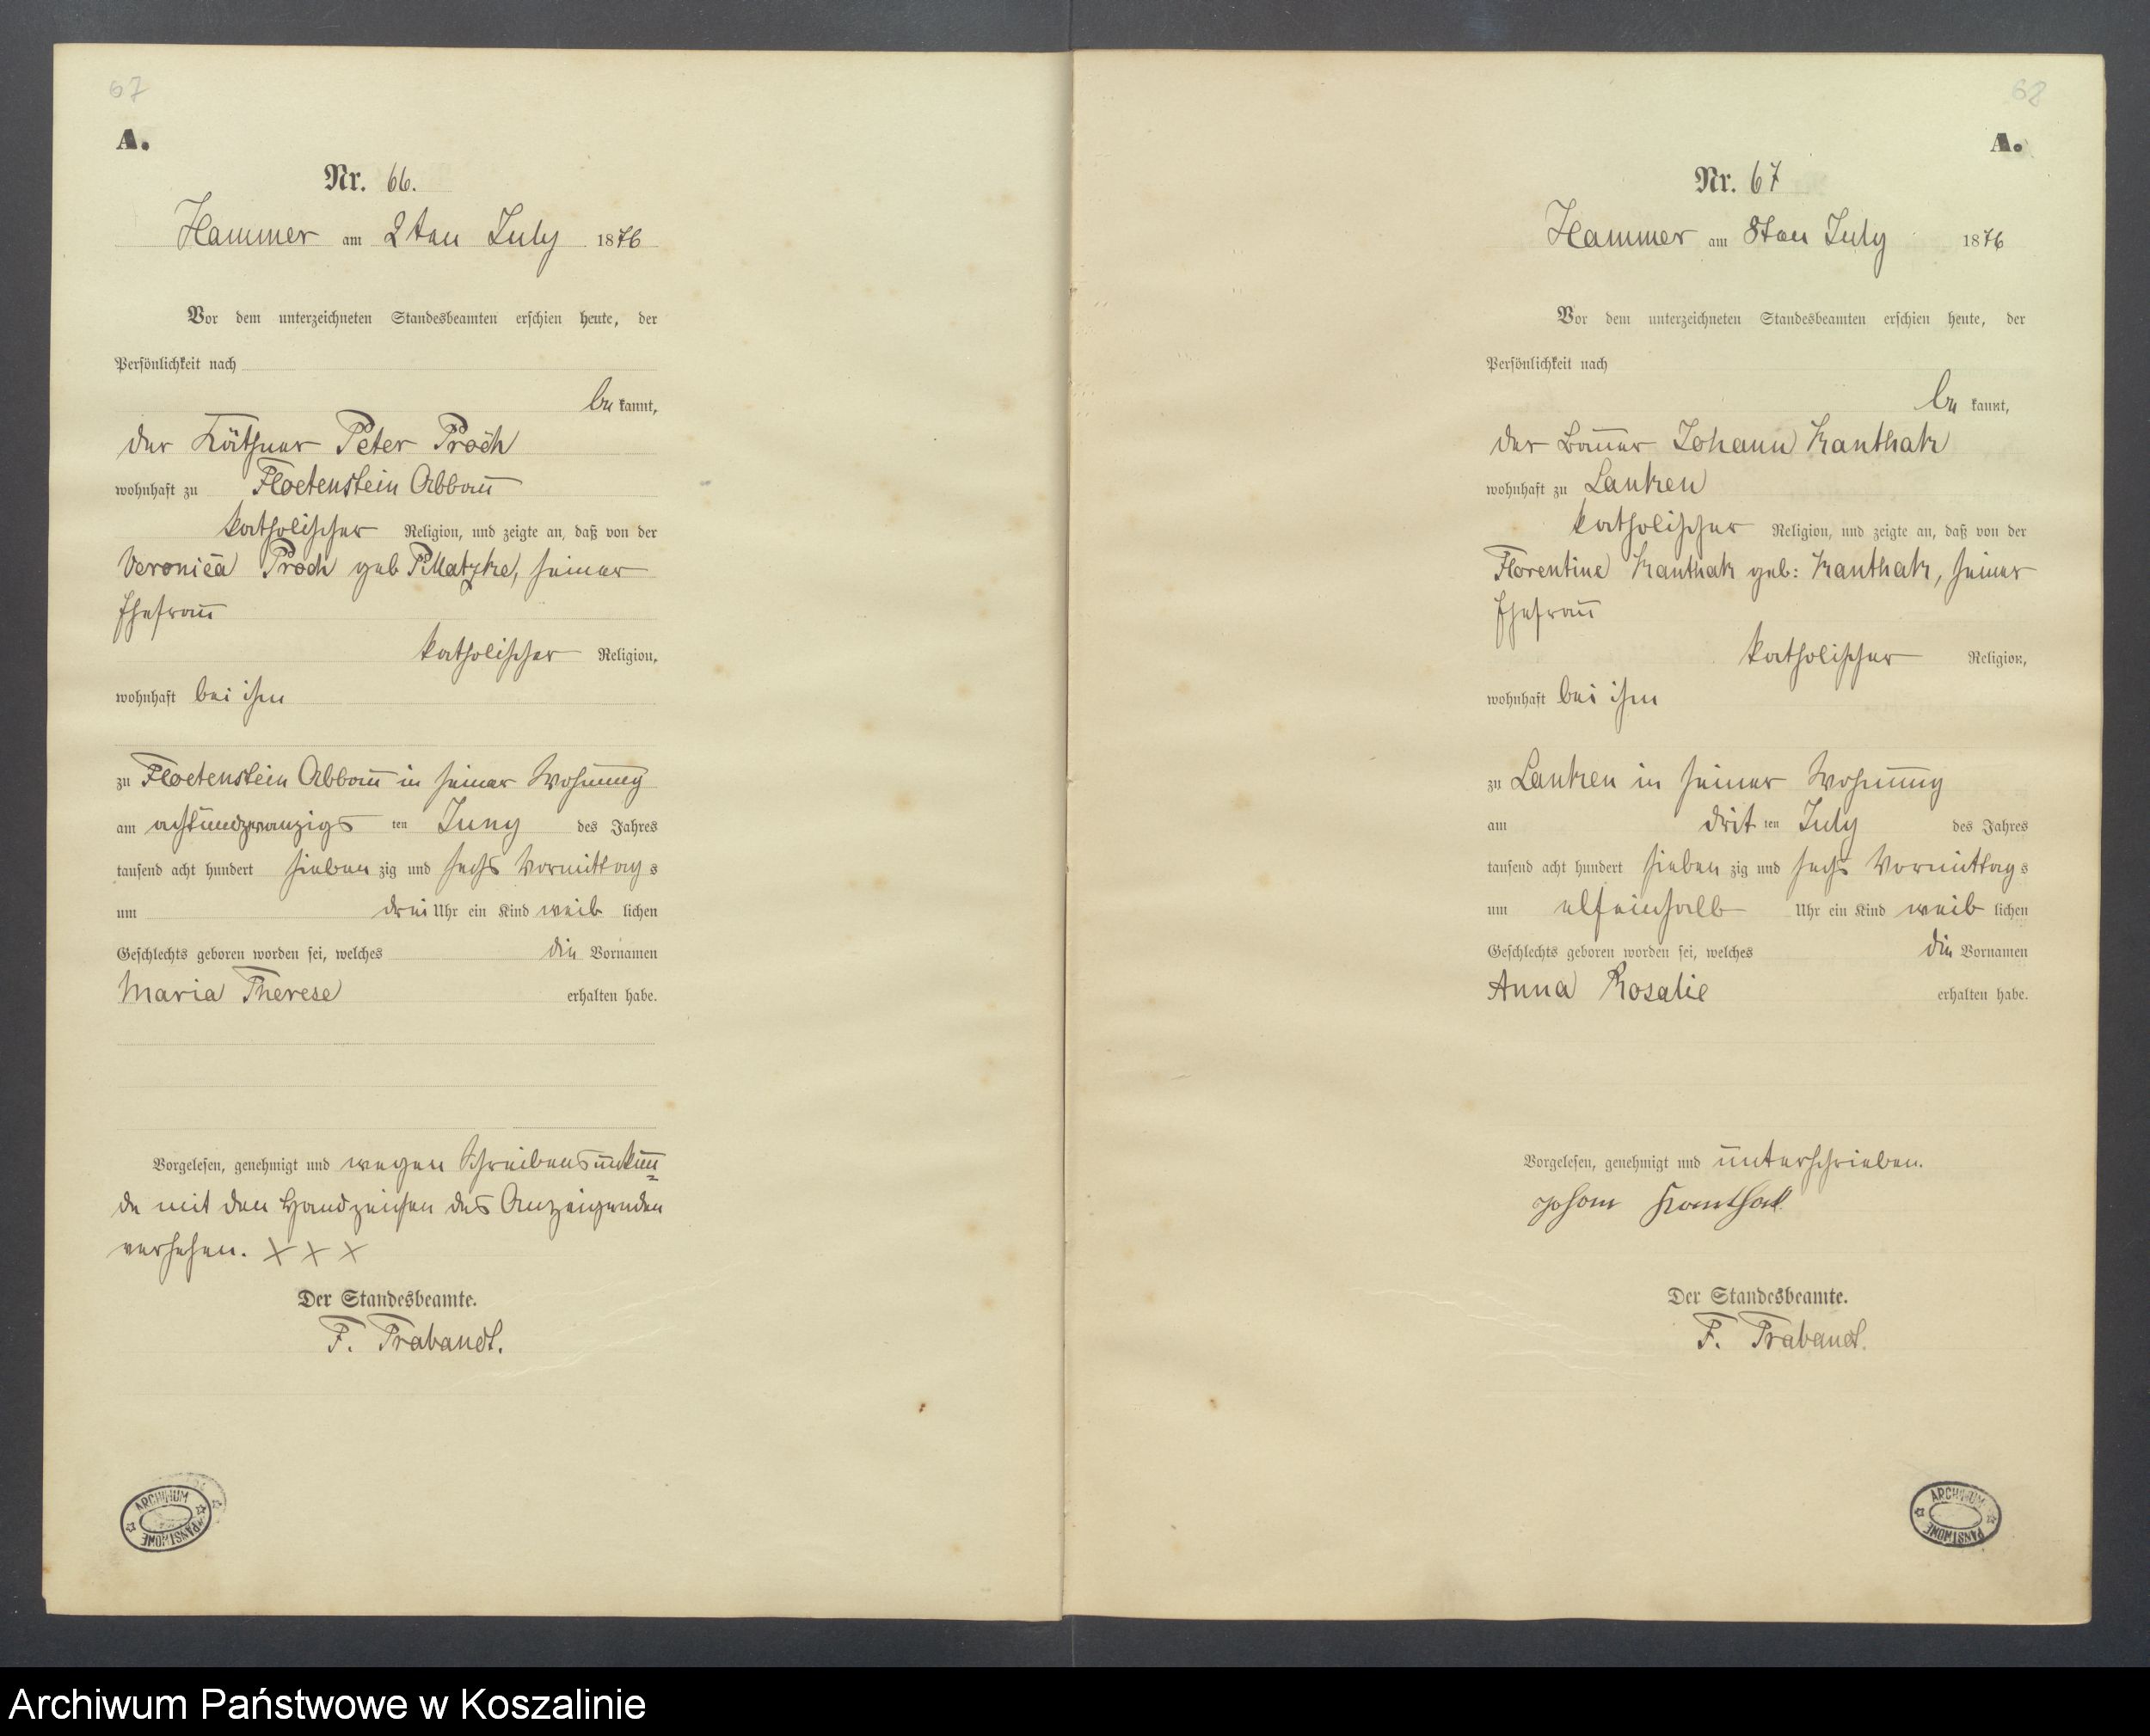 67
A.
Nr. 66.
Hammer am 2ten July 1876
Vor dem unterzeichneten Standesbeamten erschien heute, der
Persönlichkeit nach
be kannt,
der Käthner Peter Proch
wohnhaft zu Floetenstein Abbau
katholischer Religion, und zeigte an, daß von der
Veronica Proch geb P. Matzke, seiner
Ehefrau
katholischer Religion,
wohnhaft bei ihm
zu Floetenstein Abbau in seiner Wohnung
am achtundzwanzigs ten Juny des Jahres
tausend acht hundert sieben zig und sechs Vormittag s
um drei Uhr ein Kind weib lichen
Geschlechts geboren worden sei, welches die Vornamen
Maria Therese erhalten habe.
Vorgelesen, genehmigt und wegen Schreibensunkun=
de mit den Handzeichen des Anzeigenden
versehen. X X X
Der Standesbeamte.
F. Trabandt.
ARCHIWUM PAŃSTWOWE
68
A.
Nr. 67
Hammer am 8ten July 1876
Vor dem unterzeichneten Standesbeamten erschien heute, der
Persönlichkeit nach
be kannt,
der Bauer Johann Kanthak
wohnhaft zu Lanken
katholischer Religion, und zeigte an, daß von der
Florentine Kanthak geb: Kanthak, seiner
Ehefrau
katholischer Religion,
wohnhaft bei ihm
zu Lanken in seiner Wohnung
am drit ten July des Jahres
tausend acht hundert sieben zig und sechs Vormittag s
um elfeinhalb Uhr ein Kind weib lichen
Geschlechts geboren worden sei, welches die Vornamen
Anna Rosalie erhalten habe.
Vorgelesen, genehmigt und unterschrieben.
Johan Kanthak
Der Standesbeamte.
F. Trabandt.
ARCHIWUM PAŃSTWOWE
Archiwum Państwowe w Koszalinie